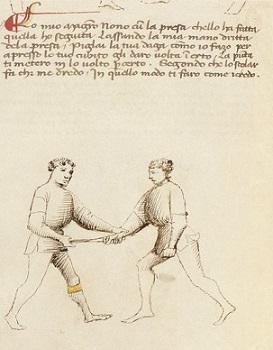 Eo mio çugno Nono cũ la presa chello ha fatta
quella ho seguita Lassando la mia mano dritta
dela presa / Piglai la tua daga como io fazo per
apresso lo tuo cubito gli daro volta ĩ certo / La punta
ti metero in lo volto ꝑ certo. Segondo che lo scolar
fa chi me dredo / In quello modo ti faro come icredo.